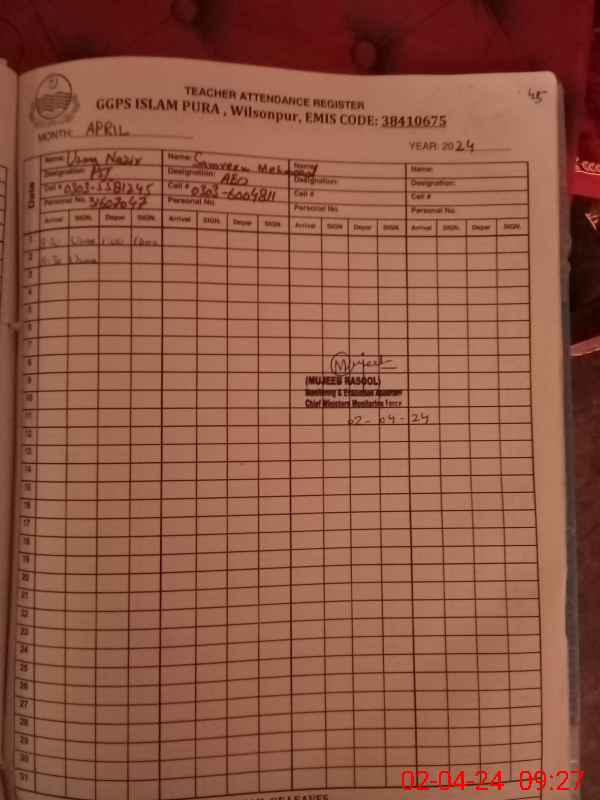 45
TEACHER ATTENDANCE REGISTER
GGPS ISLAM PURA , Wilsonpur, EMIS CODE: 38410675
MONTH: APRIL YEAR: 2024
Date
Name: Uzma Nazir Name: Name: Name:
Designation: Designation: AEO Designation: Designation:
Cell # Cell # 0303-6004811 Cell # Cell #
Personal No. 31607047 Personal No. Personal No. Personal No.
Arrival SIGN. Depar SIGN. Arrival SIGN. Depar SIGN. Arrival SIGN. Depar SIGN. Arrival SIGN. Depar SIGN.
1
2
3
4
5
6
7
8
Mujeeb
9 (MUJEEB RASOOL)
10 Monitoring & Evaluation Assistant
Chief Ministers Monitoring Force
11 02-04-24
12
13
14
15
16
17
18
19
20
21
22
23
24
25
26
27
28
29
30
31
02-04-24 09:27